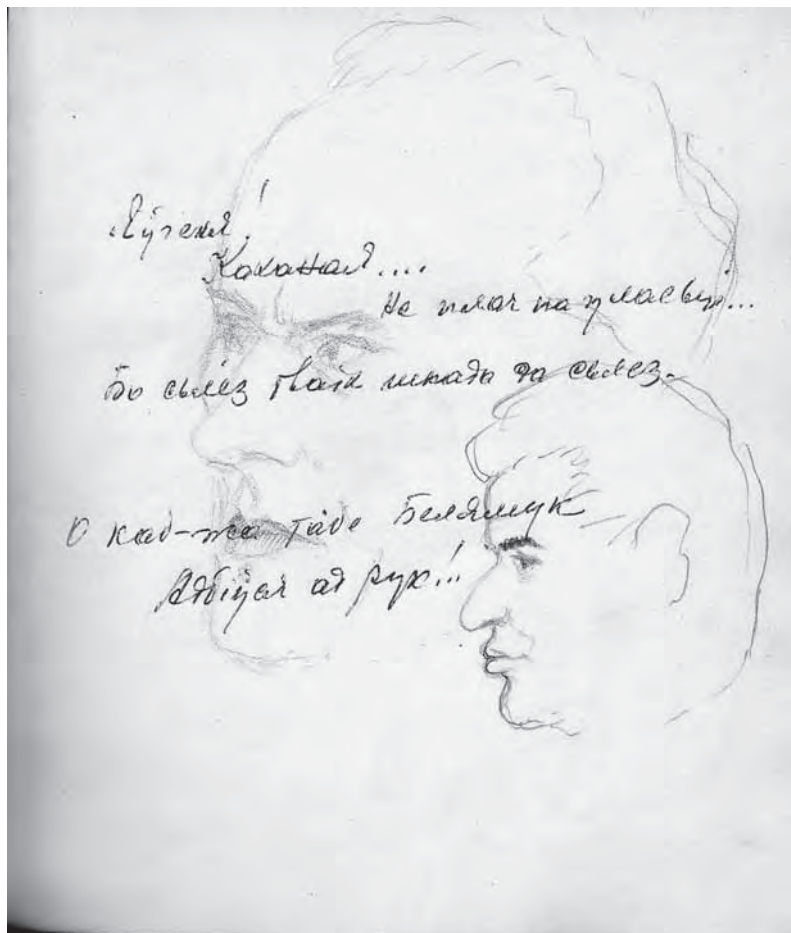 Яўгенія!
Каханая....
Не плач па уласьці...
Бо сьлёз тваіх шкада да сьлез.
О каб-жа табе Белямук
Адбіуся ад рук!